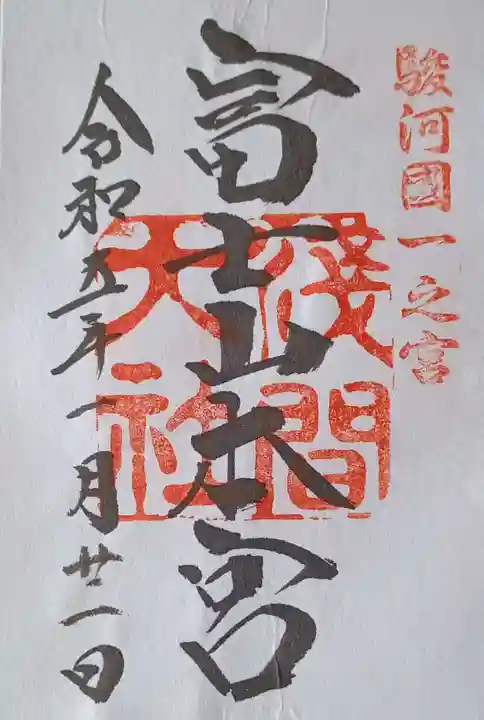 駿河國一之宮
富士山本宮
淺間大社
令和五年一月廿一日